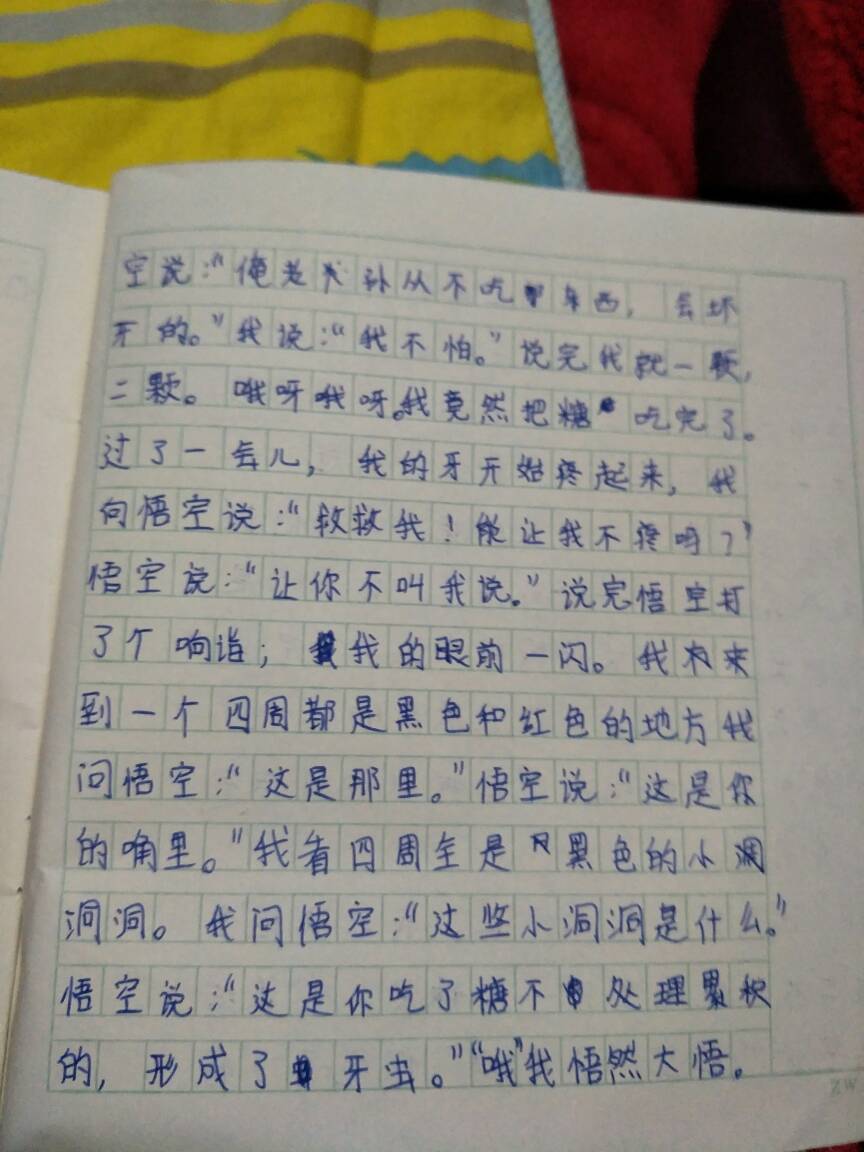 空说:“俺老孙从不吃东西,会坏
牙的。”我说:“我不怕。”说完我就一颗,
二颗。哦呀哦呀。我竟然把糖吃完了。
过了一会儿,我的牙开始疼起来,我
向悟空说:“救救我!能让我不疼吗?”
悟空说:“让你不叫我说。”说完悟空打
了个响诣;我的眼前一闪。我来
到一个四周都是黑色和红色的地方我
问悟空:“这是那里。”悟空说:“这是你
的嘴里。”我看四周全是黑色的小洞
洞洞。我问悟空:“这些小洞洞是什么。”
悟空说:“这是你吃了糖不处理累积
的,形成了牙虫。”“哦”我悟然大悟。